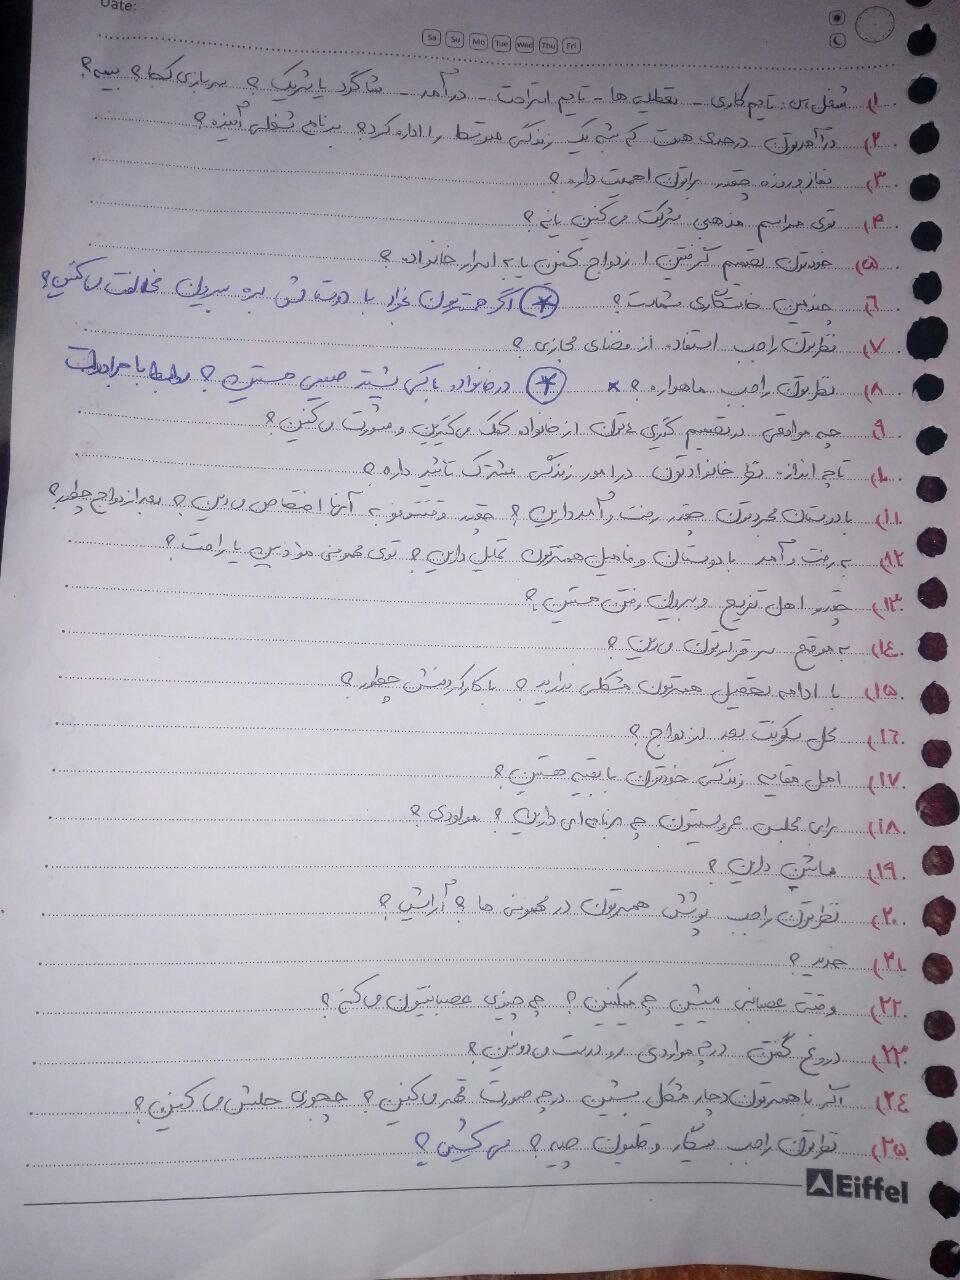 Date:
Sa Su Mo Tue Wed Thu Fri
۱) شغلش: تایم کاری - تعطیلی ها - تایم استراحت - درآمد - شاگرد یا شریک؟ سربازی کجا؟ بیمه؟
۲) درآمدتون درحدی هست که بشه یک زندگی متوسط را اداره کرد؟ برنامه شغلی آینده؟
۳) نماز و روزه چقدر براتون اهمیت داره؟
۴) توی مراسم مذهبی شرکت می‌کنین یا نه؟
۵) خودتون تصمیم گرفتین ازدواج کنین یا به اصرار خانواده؟
۶) چندمین خاستگاری شماست؟ * اگر همسرتون بخواد با دوستاش بره بیرون مخالفت می‌کنین؟
۷) نظرتون راجب استفاده از فضای مجازی؟
۸) نظرتون راجب ماهواره؟ * * درخانواده با کی بیشتر صمیمی هستین؟ روابط با برادرات
۹) چه مواقعی در تصمیم گیری ها تون از خانواده کمک می‌گیرین و مشورت می‌کنین؟
۱۰) تا چه اندازه نظر خانوادتون در امور زندگی مشترک تأثیر داره؟
۱۱) با دوستان مجردتون چقدر رفت و آمد دارین؟ چقدر وقتتونو به آنها اختصاص می‌دین؟ بعد ازدواج چطور؟
۱۲) به رفت و آمد با دوستان و فامیل همسرتون تمایل دارین؟ توی مهمونی مؤدبین یا راحت؟
۱۳) چقدر اهل تفریح و بیرون رفتن هستین؟
۱۴) به موقع سر قرارتون می‌رین؟
۱۵) با ادامه تحصیل همسرتون مشکلی ندارید؟ با کار کردنش چطور؟
۱۶) محل سکونت بعد از ازدواج؟
۱۷) اهل مقایسه زندگی خودتون با بقیه هستین؟
۱۸) برای مجلس عروسیتون چه برنامه ای دارین؟ مولودی؟
۱۹) ماشین دارین؟
۲۰) نظرتون راجب پوشش همسرتون در مهمونی ها؟ آرایش؟
۲۱) خرید؟
۲۲) وقتی عصبانی میشین چه میکنین؟ چه چیزی عصبانیتون می‌کنه؟
۲۳) دروغ گفتن در چه مواردی رو درست می‌دونین؟
۲۴) اگر با همسرتون دچار مشکل بشین درچه صورت قهر می‌کنین؟ چجوری حلش می‌کنین؟
۲۵) نظرتون راجب سیگار و قلیون چیه؟ می‌کشین؟
Eiffel